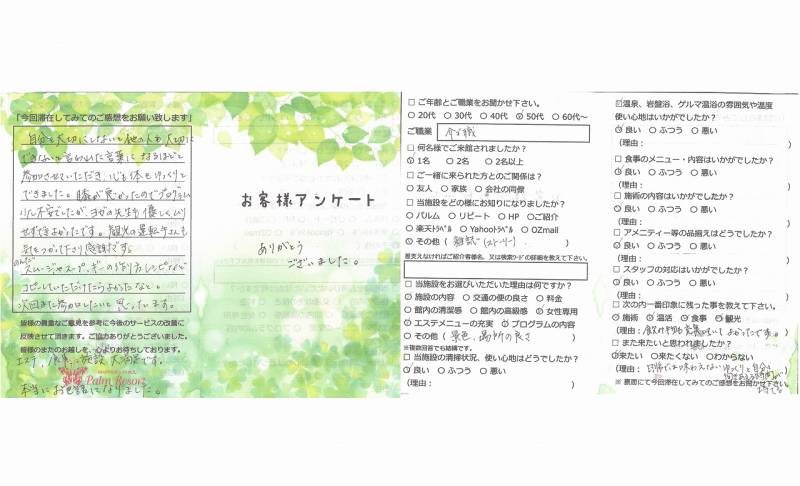 「今回滞在してみてのご感想をお願い致します」
自分を大切にしないと他の人を大切に
できないと言われた言葉になるほどと
参加させていただき、心も体もゆっくり
できました。膝が悪かったのでプログラム
少し不安でしたが、ヨガの先生も優しくムリ
せずできよかったです。観光の運転手さんも
気をつかって下さり感謝です。
のんだ
スムージー、スープ、の作り方、レシピなど
コピーしていただけたらよかったなと。
次回また参加したいと思っています。
皆様の貴重なご意見を参考に今後のサービスの改善に
反映させて頂きます。ご協力ありがとうございました。
皆様のまたのお越しを、心よりお待ちしております。
エステ、食事、施設、大満足です。
Palm Resort
本当にお世話になりました。
お客様アンケート
ありがとう
ございました。
□ ご年齢とご職業をお聞かせ下さい。
○ 20代 ○ 30代 ○ 40代 ○ 50代 ○ 60代～
ご職業
□ 何名様でご来館されましたか?
○ 1名 ○ 2名 ○ 2名以上
□ ご一緒に来られた方とのご関係は?
○ 友人 ○ 家族 ○ 会社の同僚
□ 当施設をどの様にお知りになりましたか?
○ パルム ○ リピート ○ HP ○ご紹介
○ 楽天トラベル ○ Yahooトラベル ○ OZmall
○ その他 ( 雑誌(ストーリー) )
差支えなければご紹介者様名、又は検索ワードの詳細を教えて下さい。
□ 当施設をお選びいただいた理由は何ですか?
○ 施設の内容 ○ 交通の便の良さ ○ 料金
○ 館内の清潔感 ○ 館内の高級感 ○ 女性専用
○ エステメニューの充実 ○ プログラムの内容
○ その他 ( 景色、場所の良さ )
※複数回答でも結構です。
□ 当施設の清掃状況、使い心地はどうでしたか?
○ 良い ○ ふつう ○ 悪い
(理由: )
☑温泉、岩盤浴、ゲルマ温浴の雰囲気や温度
使い心地はいかがでしたか?
○ 良い ○ ふつう ○ 悪い
(理由: )
□ 食事のメニュー・内容はいかがでしたか?
○ 良い ○ ふつう ○ 悪い
(理由: )
□ 施術の内容はいかがでしたか?
○ 良い ○ ふつう ○ 悪い
(理由: )
□ アメニティー等の品揃えはどうでしたか?
○ 良い ○ ふつう ○ 悪い
(理由: )
□ スタッフの対応はいかがでしたか?
○ 良い ○ ふつう ○ 悪い
(理由: )
□ 次の内一番印象に残った事を教えて下さい。
○ 施術 ○ 温活 ○ 食事 ○ 観光
(理由:
□ また来たいと思われましたか?
○来たい ○ 来たくない ○わからない
(理由: 日常では味わえないゆっくりと自分と
※ 裏面にて今回滞在してみてのご感想をお聞かせ下さい。